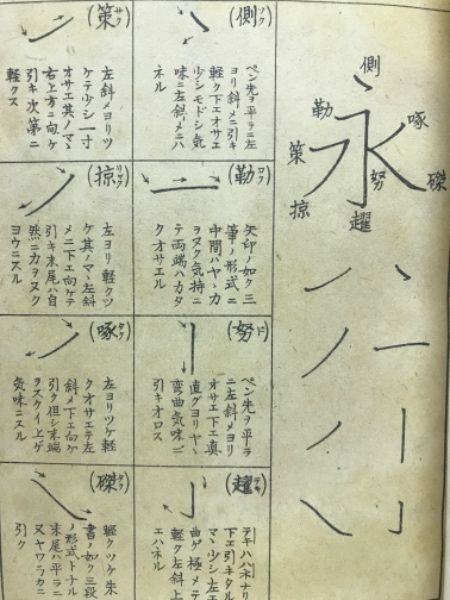 側
勒
啄
策
永
努
磔
掠
趯
(側)ソク
ペン先ヲ平ラニ左
ヨリ斜メニ引キ
軽ク下エオサエ
少シモドシ気
味ニ左斜メニハ
ネル
(勒)ロク
矢印ノ如ク三
筆ノ形式ニ
中間ハヤヽ力
ヲヌク気持ニ
テ両端ハカタ
クオサエル
(努)ド
ペン先ヲ平ラ
ニ左斜メヨリ
オサエ下エ真
直グヨリヤヽ
弯曲気味ニ
引キオロス
(趯)テキ
テキハハネナリ
下エ引キタル
マヽ少シ左エ
曲ゲ極メテ
軽ク左斜上
エハネル
(策)サク
左斜メヨリツ
ケテ少シ一寸
オサエ其ノマヽ
右上方ニ向ケ
引キ次第ニ
軽クス
(掠)リヤク
左ヨリ軽クツ
ケ其ノマヽ左斜
メニ下エ向ケテ
引キ末尾ハ自
然ニカヲヌク
ヨウニスル
(啄)タク
左ヨリツケ軽
クオサエテ左
斜メ下エ向ケ
引ク但シ末端
ヲスクイ上ゲ
気味ニスル
(磔)タク
軽クツケ朱
書ノ如ク三段
ノ形式トナル
末尾ハ平ラニ
又ヤワラカニ
引ク